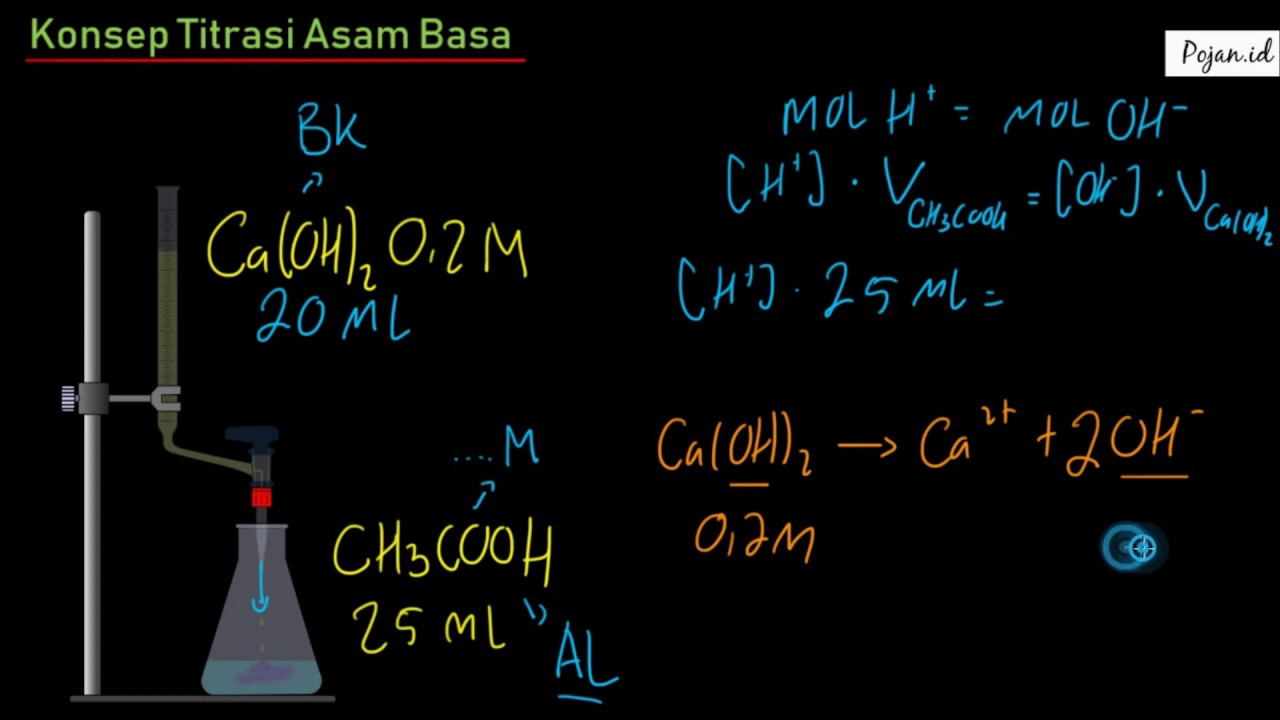 Konsep Titrasi Asam Basa
Pojan.id
BK
Ca(OH)₂ 0,2 M
20 ML
.... M
CH3COOH
25 ML
AL
MOL H⁺ = MOL OH⁻
[H⁺] · V CH3COOH = [OH⁻] · V Ca(OH)₂
[H⁺] · 25 ML =
Ca(OH)₂ → Ca²⁺ + 2OH⁻
0,2M